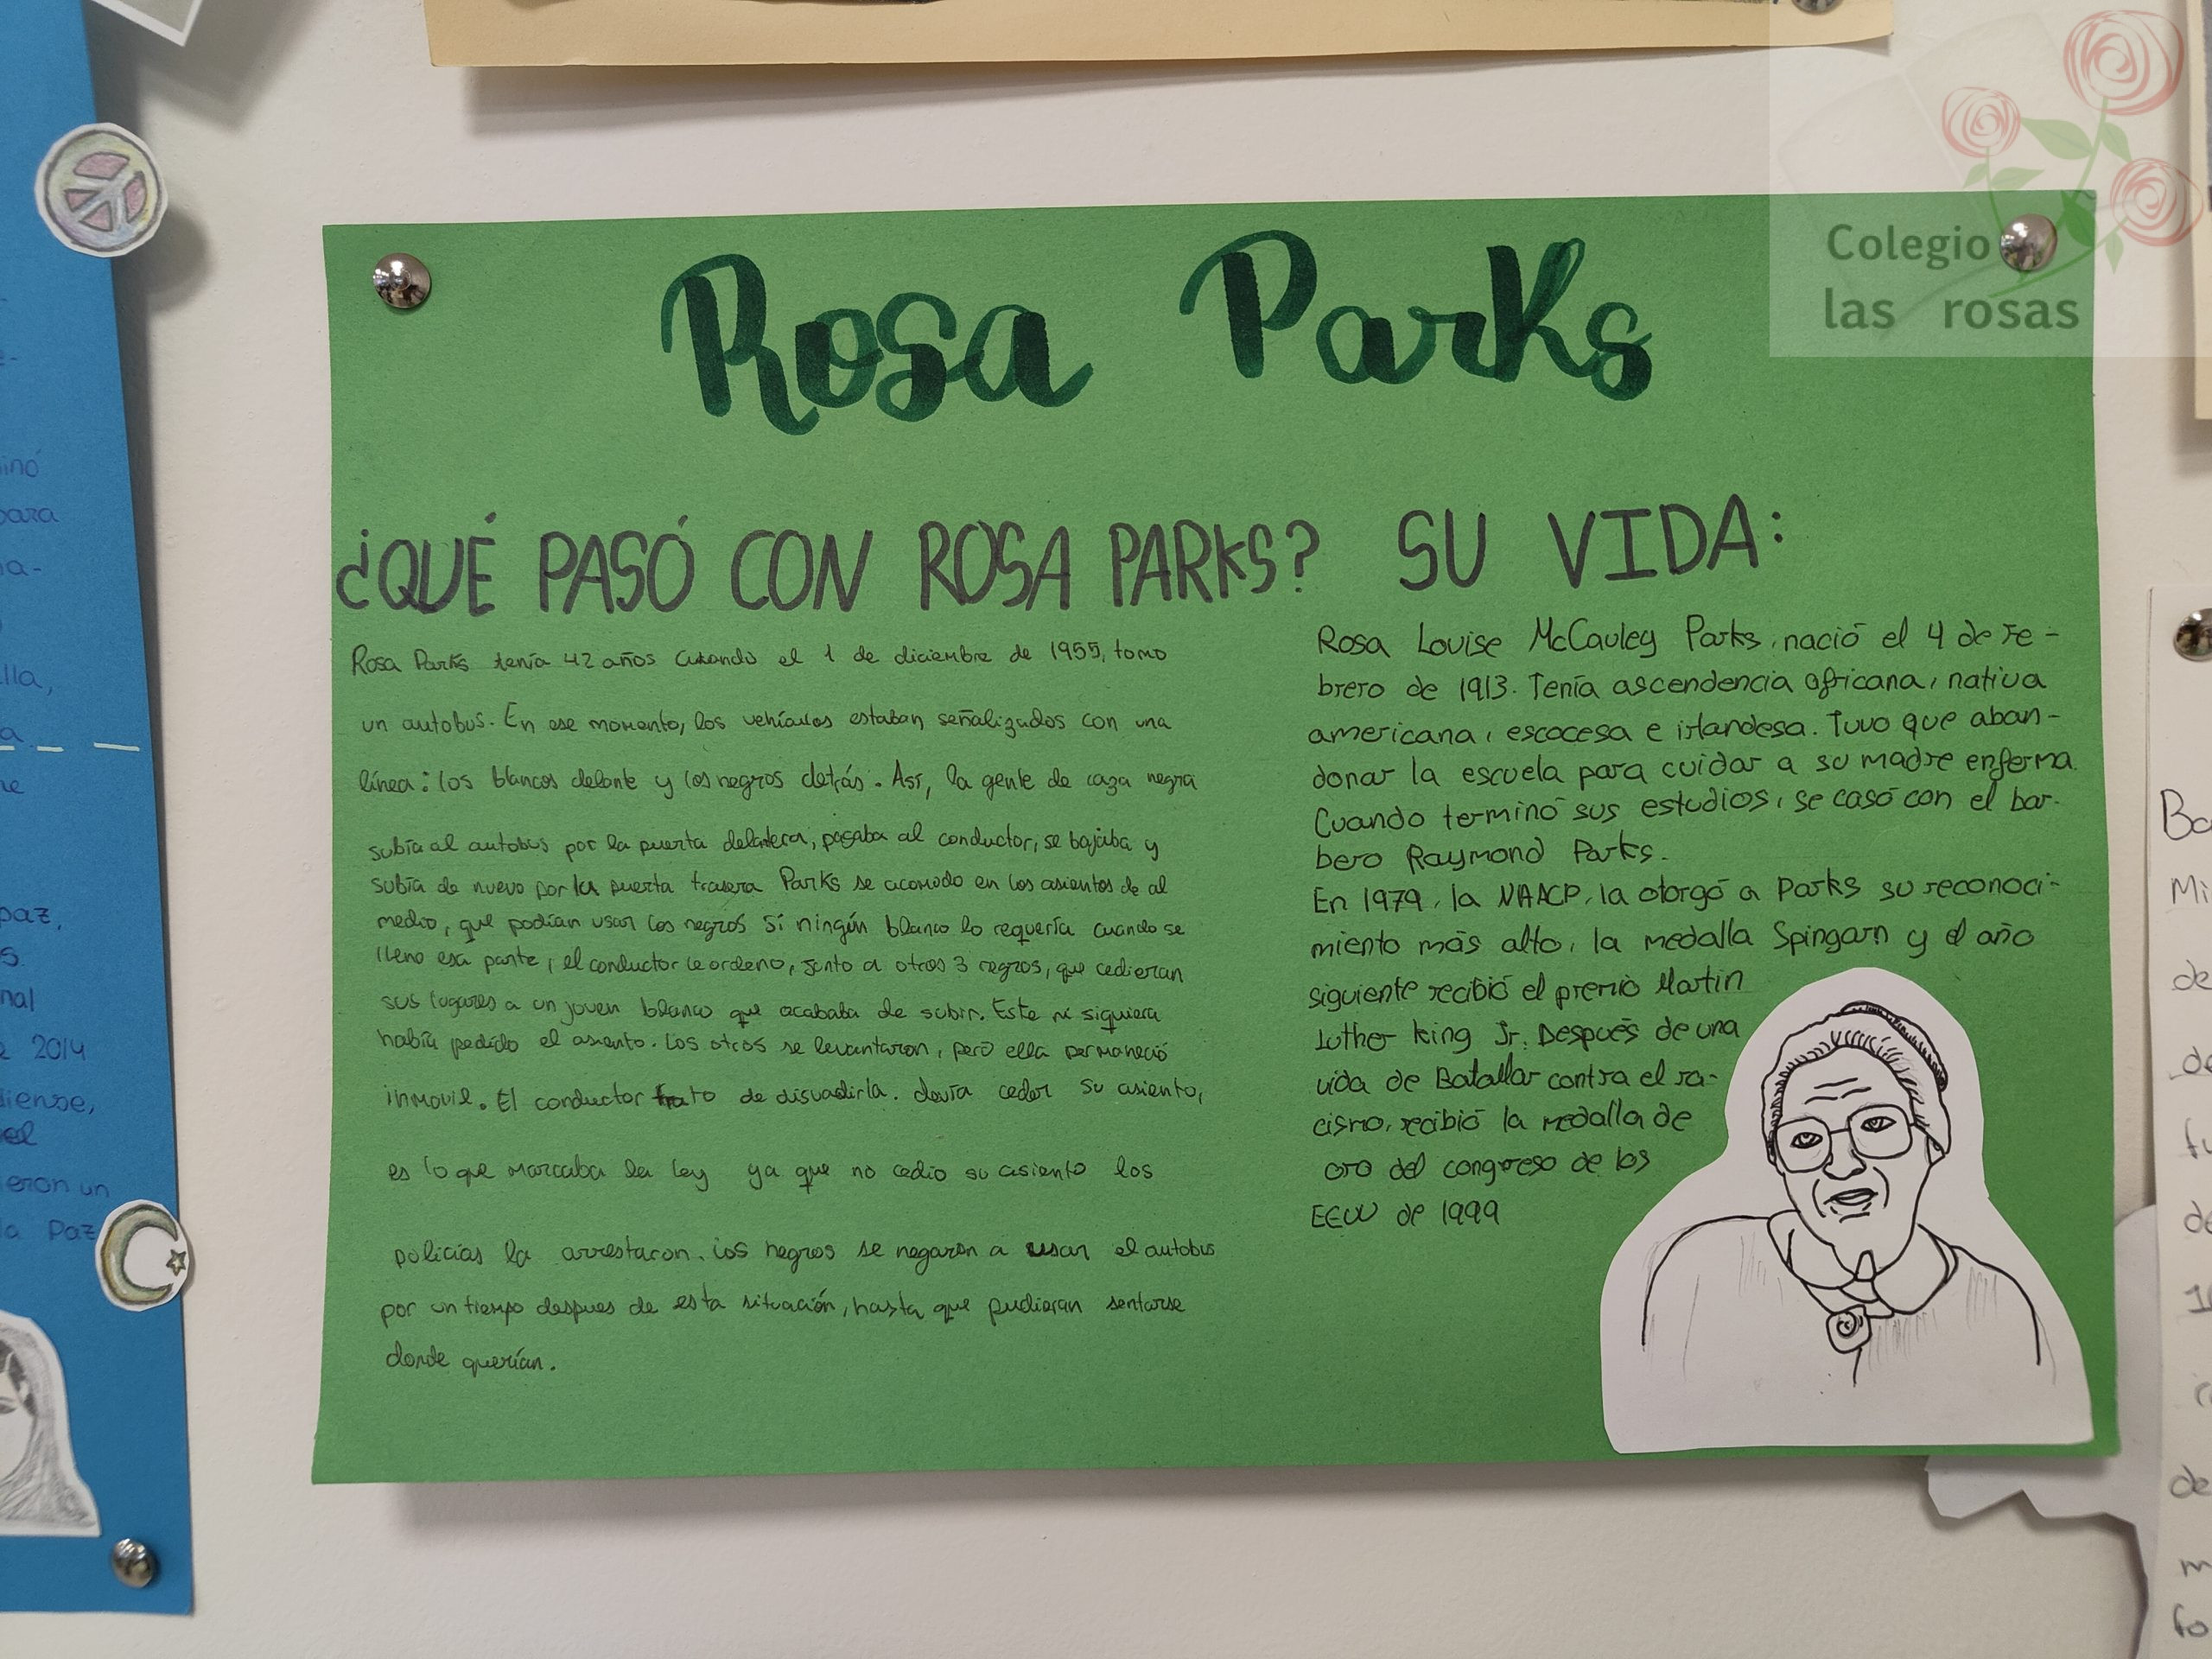 Colegio
las rosas
Rosa Parks
¿QUÉ PASÓ CON ROSA PARKS?
Rosa Parks tenía 42 años cuando el 1 de diciembre de 1955, tomo
un autobus. En ese momento, los vehículos estaban señalizados con una
línea: los blancos delante y los negros detrás. Así, la gente de raza negra
subía al autobus por la puerta delantera, pagaba al conductor, se bajaba y
subía de nuevo por la puerta trasera Parks se acomodo en los asientos de al
medio, que podían usar los negros si ningún blanco lo requería cuando se
lleno esa parte, el conductor le ordeno, junto a otros 3 negros, que cedieran
sus lugares a un joven blanco que acababa de subir. Este ni siquiera
había pedido el asiento. Los otros se levantaron, pero ella permaneció
inmovil. El conductor trato de disuadirla. devía ceder su asiento,
es lo que marcaba la ley ya que no cedio su asiento los
policías la arrestaron. los negros se negaron a usar el autobus
por un tiempo despues de esta situación, hasta que pudieran sentarse
donde querían.
SU VIDA:
Rosa Louise McCauley Parks, nació el 4 de Fe-
brero de 1913. Tenía ascendencia africana, nativa
americana, escocesa e irlandesa. Tuvo que aban-
donar la escuela para cuidar a su madre enferma.
Cuando terminó sus estudios, se casó con el bar-
bero Raymond Parks.
En 1979, la NAACP, la otorgó a Parks su reconoci-
miento más alto, la medalla Spingarn y el año
siguiente recibió el premio Martin
Luther King Jr. Después de una
vida de Batallar contra el ra-
cismo, recibió la medalla de
oro del congreso de los
EEUU de 1999
inó
para
a-
lla,
a.
paz,
s.
nal
2014
diense,
el
ieron un
la Paz
Mi
de
de
fu
de
de
m
fo